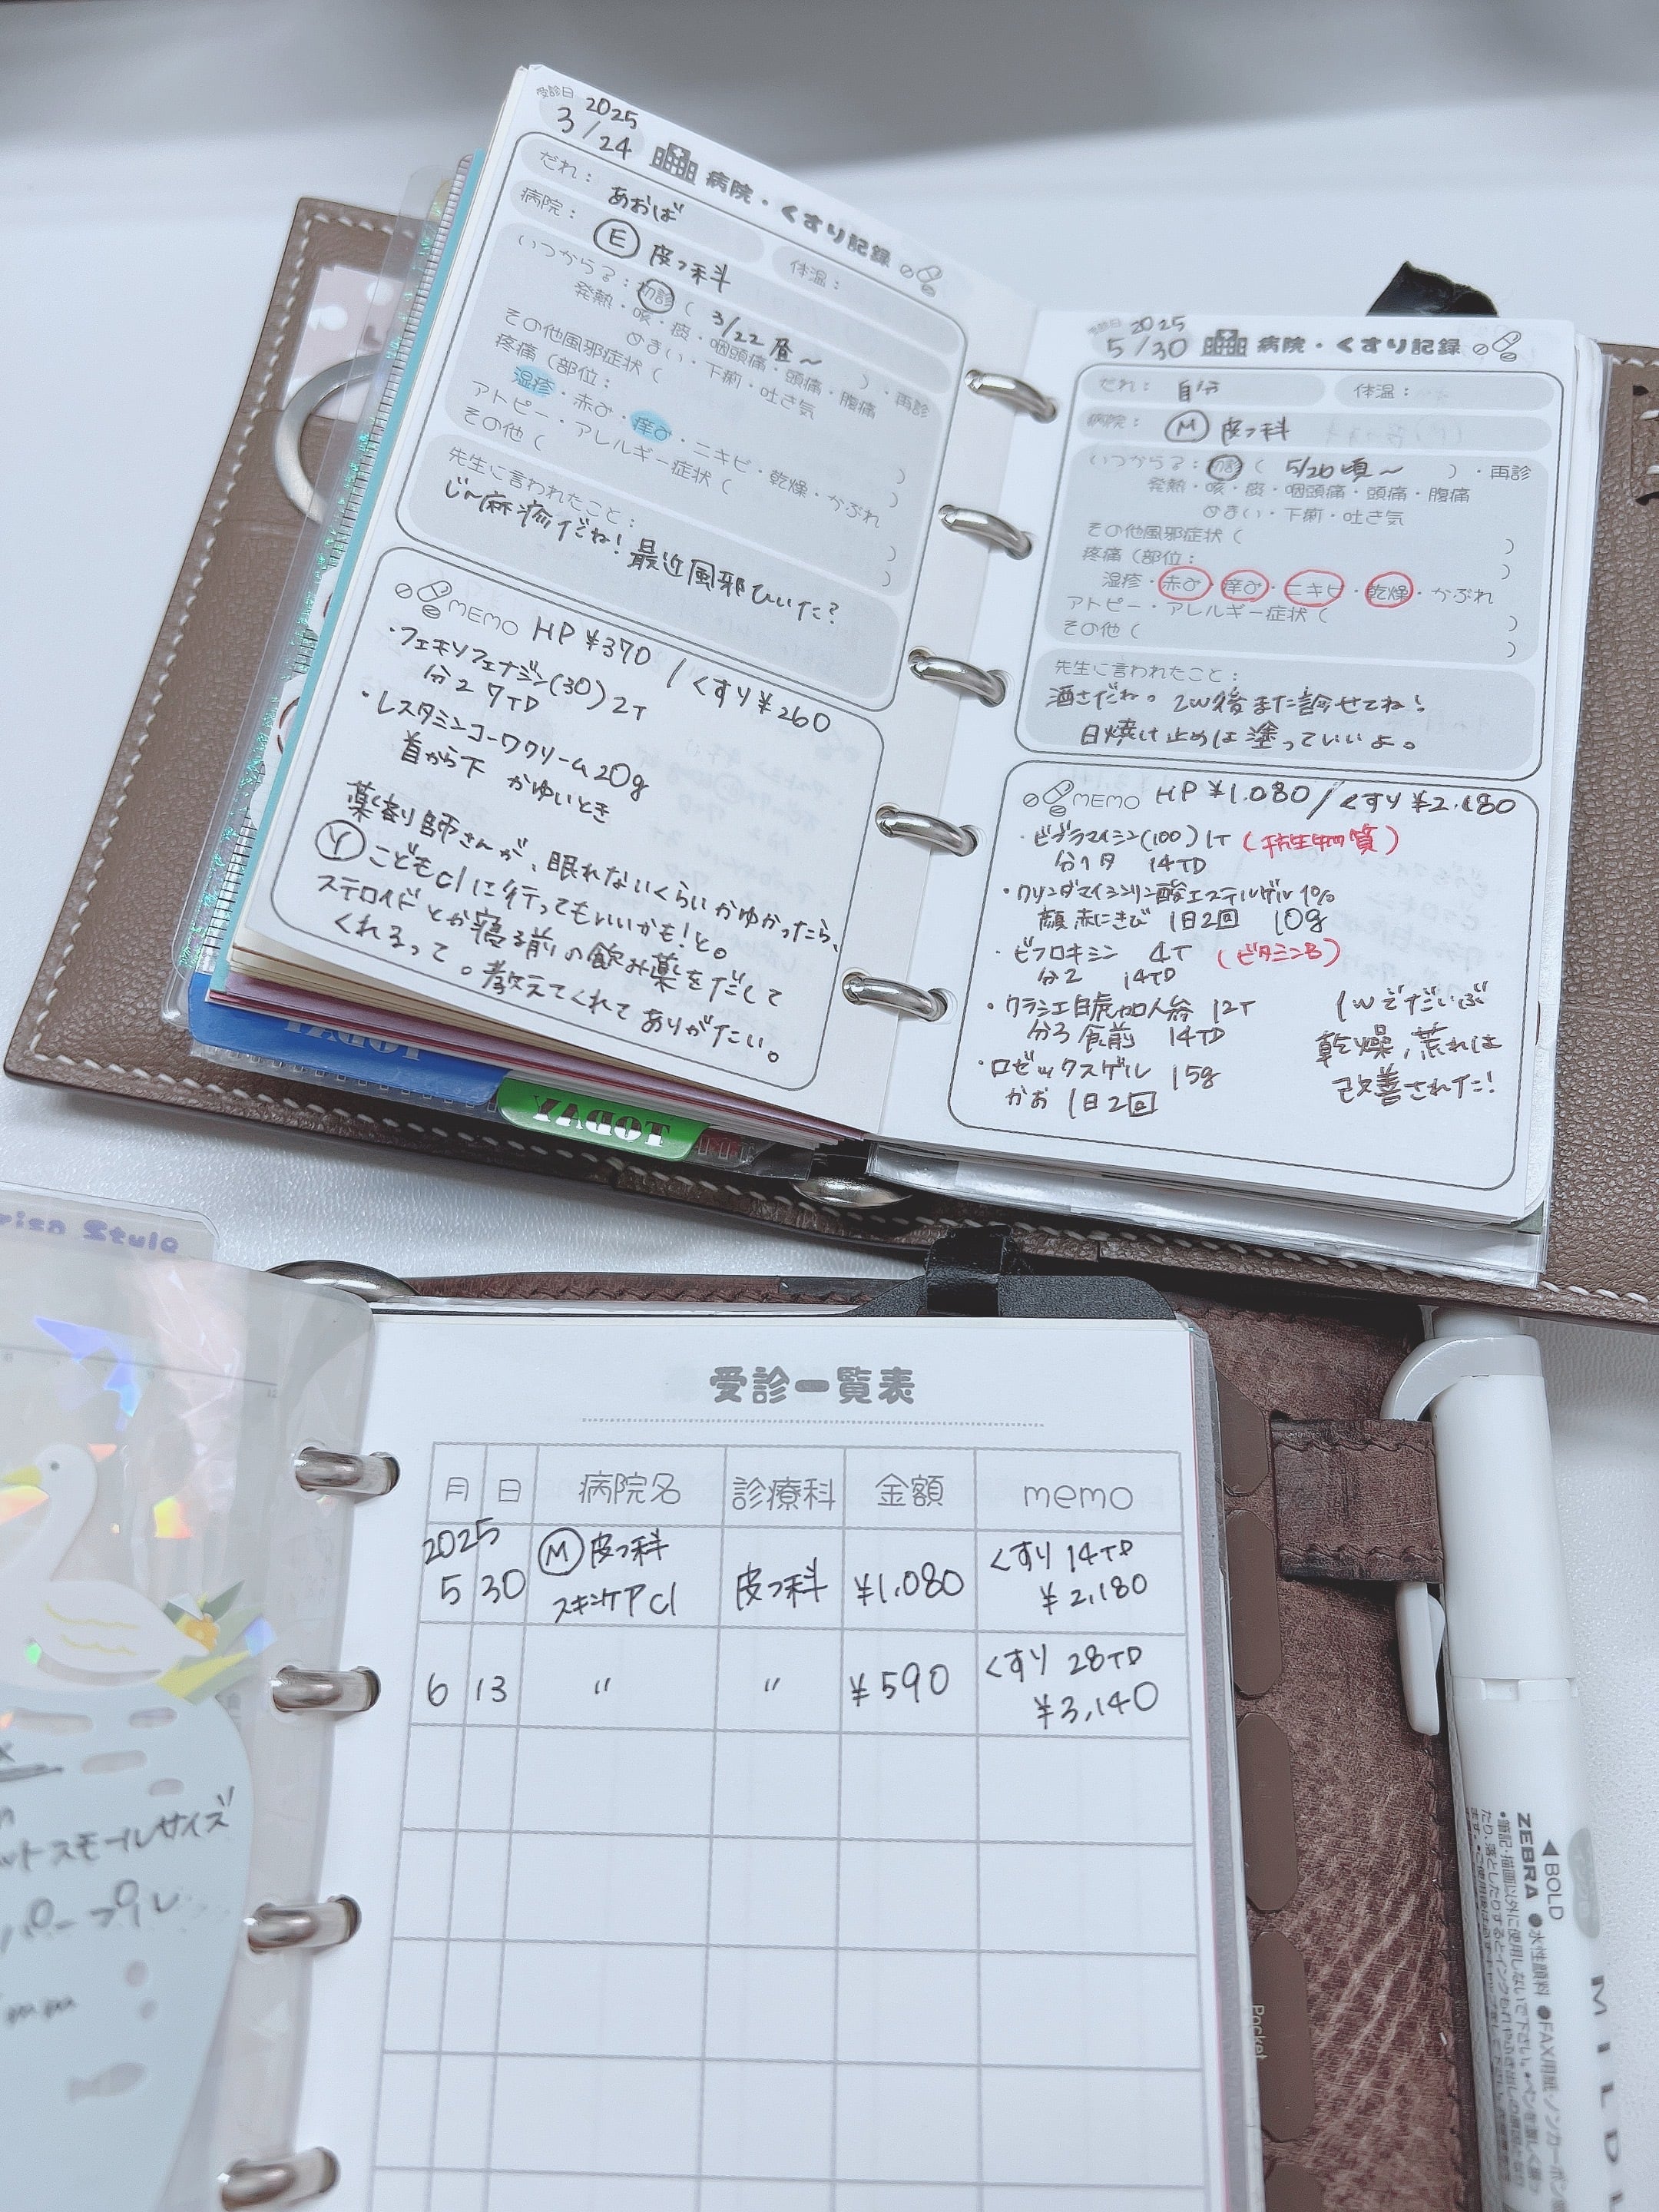 受診日 2025
3/24 病院・くすり記録
だれ： あおば 体温：
病院： Ⓔ 皮フ科
いつから？：初診（ 3/22 昼〜 ）・再診
発熱・咳・痰・咽頭痛・頭痛・腹痛
めまい・下痢・吐き気
その他風邪症状（ ）
疼痛（部位： ）
湿疹・赤み・痒み・ニキビ・乾燥・かぶれ
アトピー・アレルギー症状（ ）
その他（ ）
先生に言われたこと：
じ〜麻疹だね！最近風邪ひいた？
MEMO HP ¥370 / くすり ¥260
・フェキソフェナジン(30) 2T
分2 7TD
・レスタミンコーワクリーム 20g
首から下 かゆいとき
薬剤師さんが、眠れないくらいかゆかったら、
Ⓨこどもclに行ってもいいかも！と。
ステロイドとか寝る前の飲み薬をだして
くれるって。教えてくれてありがたい。
TODAY
TODAY
受診日 2025
5/30 病院・くすり記録
だれ： 自分 体温：
病院： Ⓜ 皮フ科
いつから？：初診（ 5/26頃〜 ）・再診
発熱・咳・痰・咽頭痛・頭痛・腹痛
めまい・下痢・吐き気
その他風邪症状（ ）
疼痛（部位： ）
湿疹・赤み・痒み・ニキビ・乾燥・かぶれ
アトピー・アレルギー症状（ ）
その他（ ）
先生に言われたこと：
酒さだね。2W後また診せてね！
日焼け止めは塗っていいよ。
MEMO HP ¥1.080 / くすり ¥2.180
・ビブラマイシン(100) 1T （抗生物質）
分1夕 14TD
・クリンダマイシンリン酸エステルゲル1%
顔 赤にきび 1日2回 10g
・ピフロキシン 4T （ビタミンB）
分2 14TD
・クラシエ白虎加人参 12T
分3 食前 14TD
・ロゼックスゲル 15g
かお 1日2回
1Wでだいぶ
乾燥，荒れは
改善された！
受診一覧表
月 日 病院名 診療科 金額 memo
2025
5 30 Ⓜ皮フ科 スキンケアcl 皮フ科 ¥1,080 くすり 14TD ¥2,180
6 13 〃 〃 ¥590 くすり 28TD ¥3,140
スモールサイズ
パープル
Pocket
◀BOLD
ZEBRA ●水性顔料
MILD